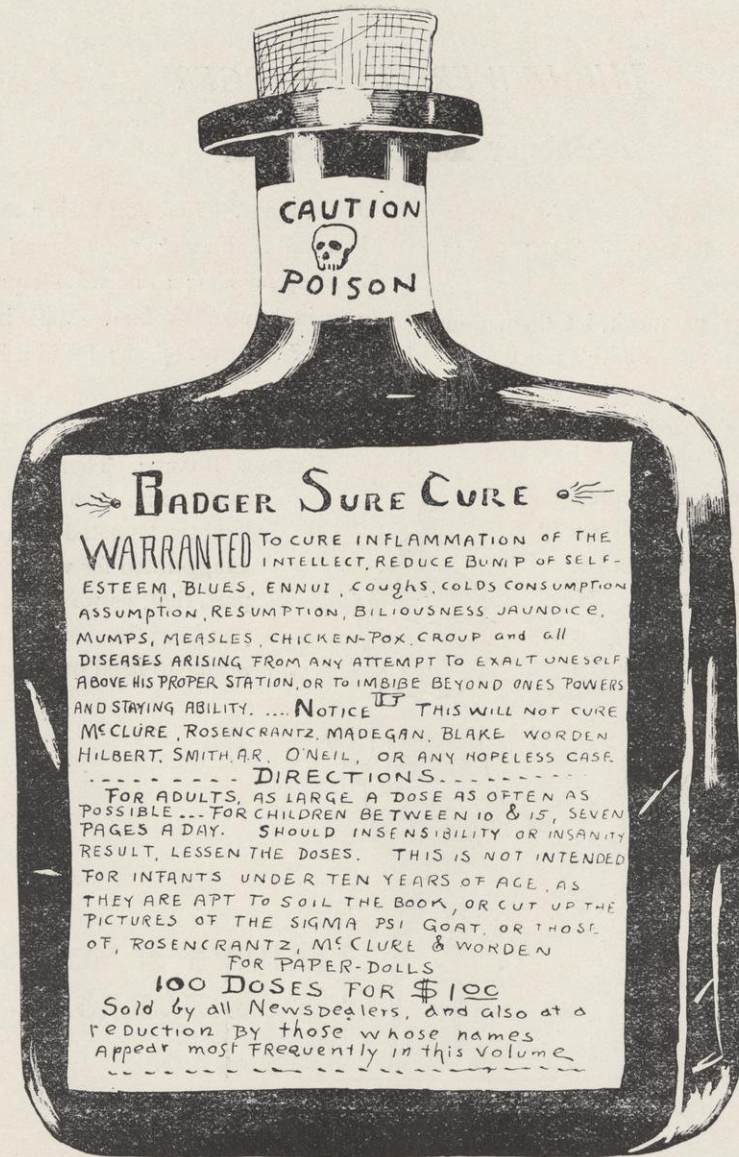 CAUTION
POISON
BADGER SURE CURE
WARRANTED TO CURE INFLAMMATION OF THE
INTELLECT, REDUCE BUMP OF SELF-
ESTEEM, BLUES, ENNUI, COUGHS, COLDS CONSUMPTION
ASSUMPTION, RESUMPTION, BILIOUSNESS JAUNDICE,
MUMPS, MEASLES, CHICKEN-POX, CROUP and all
DISEASES ARISING FROM ANY ATTEMPT TO EXALT ONESELF
ABOVE HIS PROPER STATION, OR TO IMBIBE BEYOND ONES POWERS
AND STAYING ABILITY. .... NOTICE THIS WILL NOT CURE
McCLURE, ROSENCRANTZ, MADEGAN, BLAKE WORDEN
HILBERT, SMITH, A.R. O'NEIL, OR ANY HOPELESS CASE.
DIRECTIONS
FOR ADULTS, AS LARGE A DOSE AS OFTEN AS
POSSIBLE ... FOR CHILDREN BETWEEN 10 & 15, SEVEN
PAGES A DAY. SHOULD INSENSIBILITY OR INSANITY
RESULT, LESSEN THE DOSES. THIS IS NOT INTENDED
FOR INFANTS UNDER TEN YEARS OF AGE, AS
THEY ARE APT TO SOIL THE BOOK, OR CUT UP THE
PICTURES OF THE SIGMA PSI GOAT, OR THOSE
OF, ROSENCRANTZ, McCLURE & WORDEN
FOR PAPER-DOLLS
100 DOSES FOR $1.00
Sold by all NewsDealers, and also at a
reDuction By those whose names
Appear most Frequently in this Volume